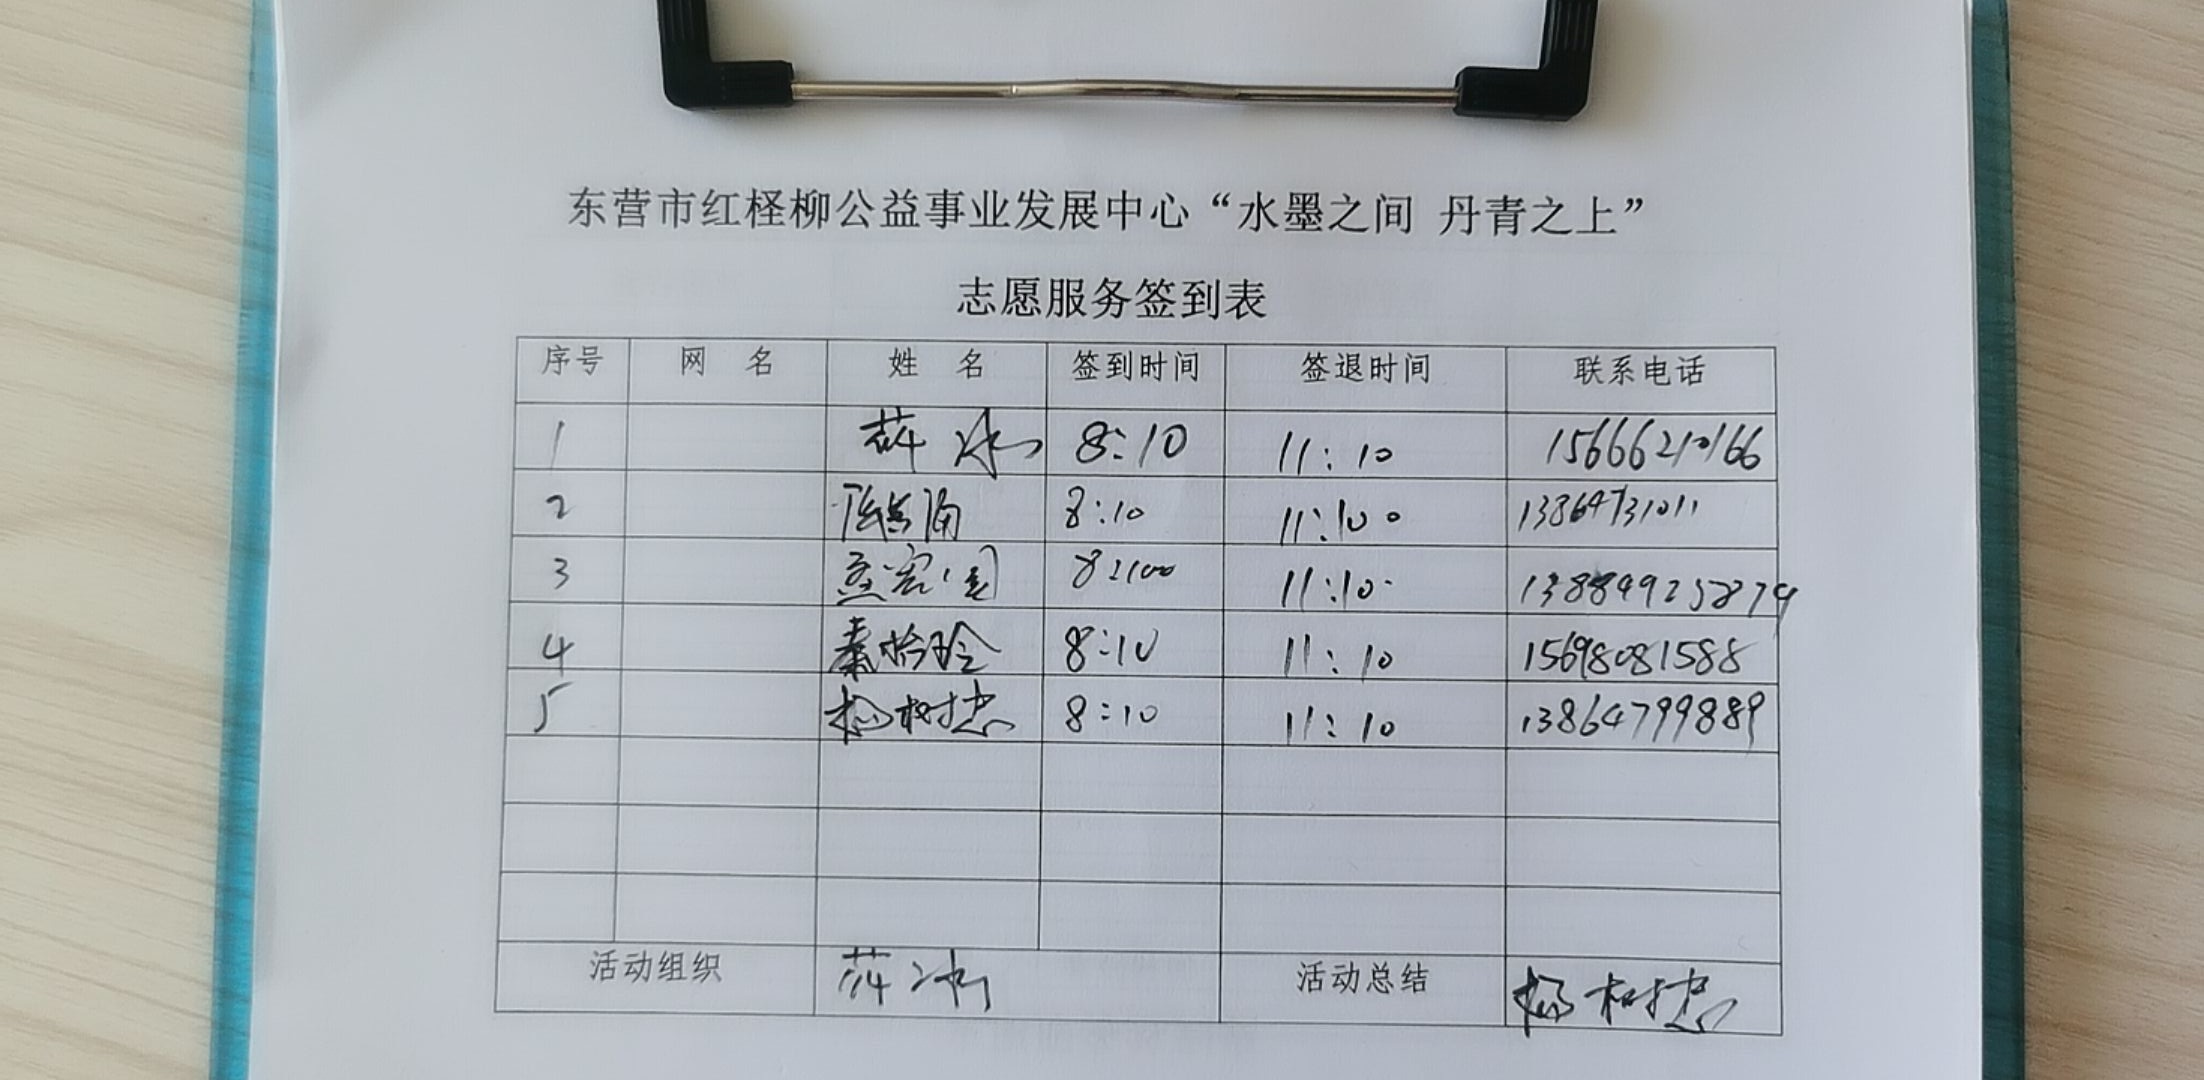 东营市红柽柳公益事业发展中心“水墨之间 丹青之上”
志愿服务签到表
序号 网 名 姓 名 签到时间 签退时间 联系电话
1 薛冰 8:10 11:10 15666210166
2 8:10 11:10 13864731011
3 11:10
4 秦 玲 8:10 11:10 15698081588
5 杨树忠 8:10 11:10 13864799889
活动组织 薛冰 活动总结 杨树忠